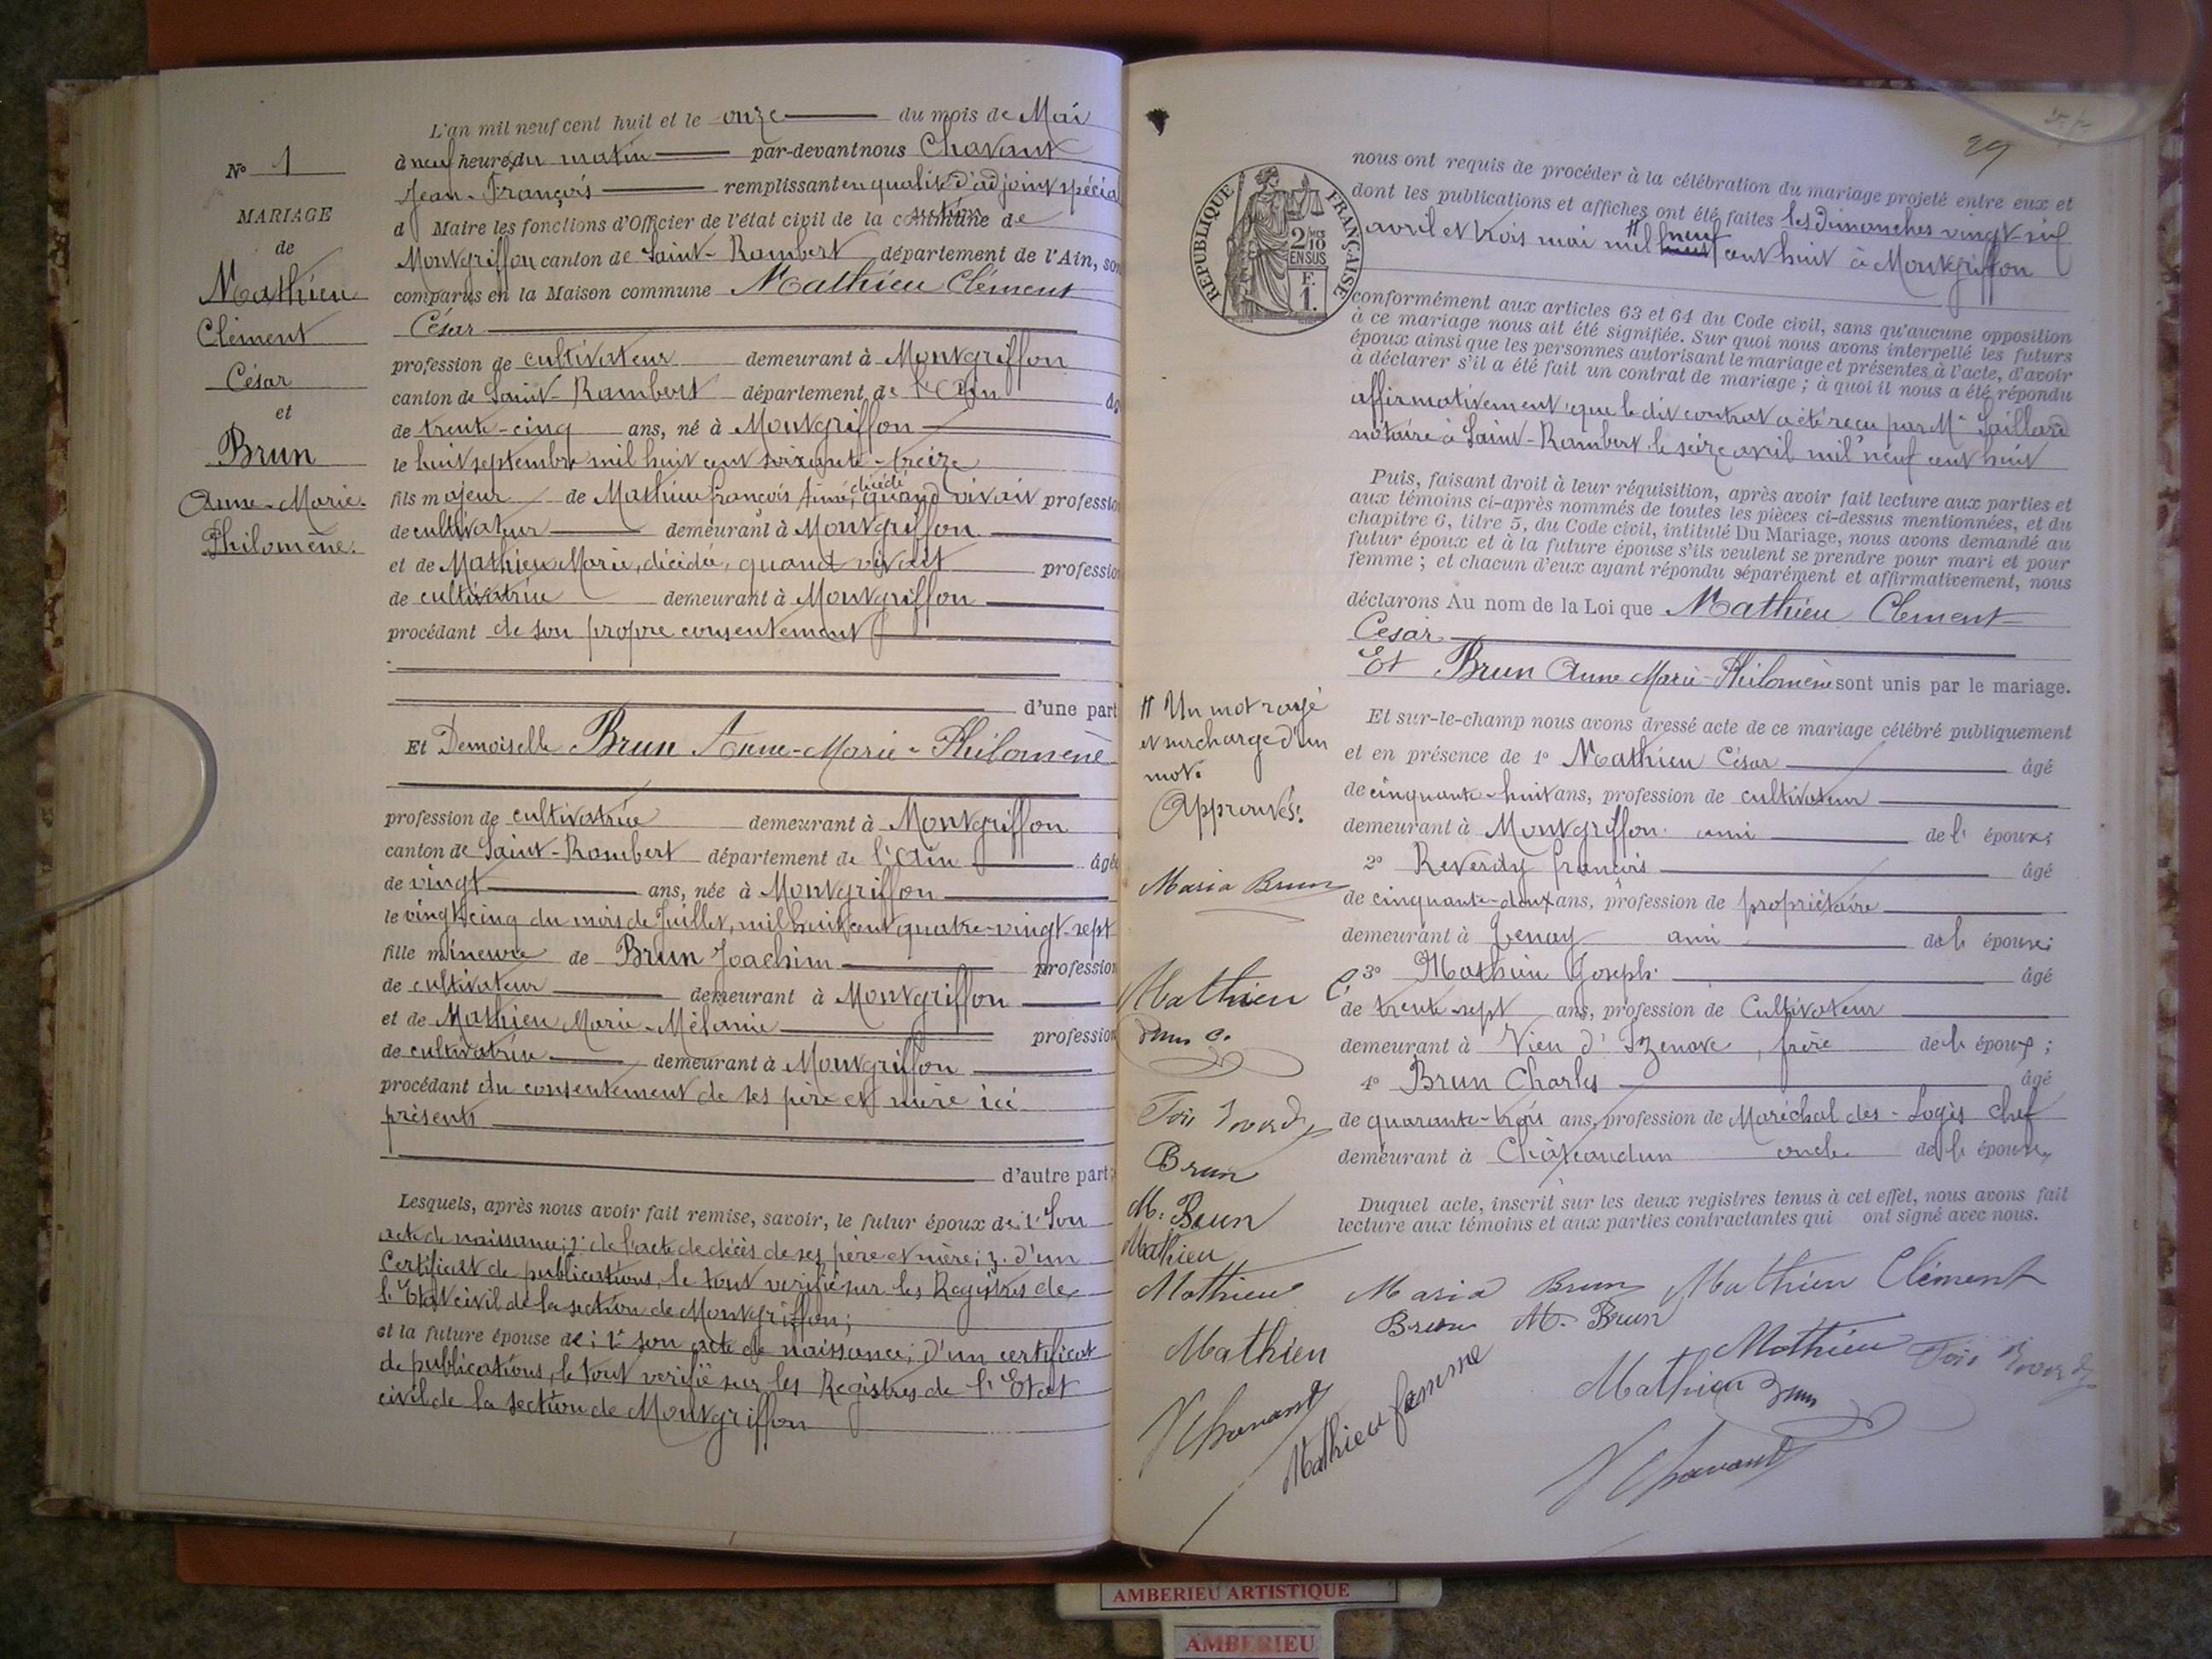 L'an mil neuf cent huit et le onze du mois de Mai
à neuf heures du matin par-devant nous Chavant
Jean-François remplissant en qualité d'adjoint spécial
d Maire les fonctions d'Officier de l'état civil de la commune de
section
Montgriffon canton de Saint-Rambert département de l'Ain, son
comparus en la Maison commune Mathieu Clément
César
profession de cultivateur demeurant à Montgriffon
canton de Saint-Rambert département de l'Ain âgé
de trente-cinq ans, né à Montgriffon
le huit septembre mil huit cent soixante-treize
fils majeur de Mathieu françois Aimé, décédé quand vivait profession
de cultivateur demeurant à Montgriffon
et de Mathieu Marie, décédée, quand vivait profession
de cultivatrice demeurant à Montgriffon
procédant de son propre consentement
d'une part
Et Demoiselle Brun Anne-Marie-Philomène
profession de cultivatrice demeurant à Montgriffon
canton de Saint-Rambert département de l'Ain âgée
de vingt ans, née à Montgriffon
le vingt cinq du mois de Juillet, mil huit cent quatre-vingt-sept
fille mineure de Brun Joachim profession
de cultivateur demeurant à Montgriffon
et de Mathieu Marie-Mélanie profession
de cultivatrice demeurant à Montgriffon
procédant du consentement de ses père et mère ici
présents
d'autre part;
Lesquels, après nous avoir fait remise, savoir, le futur époux de: 1° Son
acte de naissance; 2° de l'acte de décès de ses père et mère; 3. d'un
Certificat de publications, le tout vérifié sur les Registres de
l'Etat civil de la section de Montgriffon;
et la future épouse de: 1° son acte de naissance; D'un certificat
de publications, le tout verifié sur les Registres de l'Etat
civil de la section de Montgriffon
N° 1
MARIAGE
de
Mathieu
Clément
César
et
Brun
Anne-Marie-
Philomène.
29
RÉPUBLIQUE FRANÇAISE
2/10
EN SUS
F.
1.
nous ont requis de procéder à la célébration du mariage projeté entre eux et
dont les publications et affiches ont été faites les dimanches vingt-six
avril et trois mai mil neuf cent huit à Montgriffon
conformément aux articles 63 et 64 du Code civil, sans qu'aucune opposition
à ce mariage nous ait été signifiée. Sur quoi nous avons interpellé les futurs
époux ainsi que les personnes autorisant le mariage et présentes à l'acte, d'avoir
à déclarer s'il a été fait un contrat de mariage; à quoi il nous a été répondu
affirmativement, que le dit contrat a été reçu par Me Saillard
notaire à Saint-Rambert le seize avril mil neuf cent huit
Puis, faisant droit à leur réquisition, après avoir fait lecture aux parties et
aux témoins ci-après nommés de toutes les pièces ci-dessus mentionnées, et du
chapitre 6, titre 5, du Code civil, intitulé Du Mariage, nous avons demandé au
futur époux et à la future épouse s'ils veulent se prendre pour mari et pour
femme; et chacun d'eux ayant répondu séparément et affirmativement, nous
déclarons Au nom de la Loi que Mathieu Clement
Cesar
Et Brun Anne Marie-Philomène sont unis par le mariage.
Et sur-le-champ nous avons dressé acte de ce mariage célébré publiquement
et en présence de 1° Mathieu César âgé
de cinquante-huit ans, profession de cultivateur
demeurant à Montgriffon ami de l' époux;
2° Reverdy françois âgé
de cinquante-deux ans, profession de propriétaire
demeurant à Tenay ami de l' épouse;
3° Mathieu Joseph âgé
de trente-sept ans, profession de Cultivateur
demeurant à Vieu d'Izenave, frère de l' époux;
4° Brun Charles âgé
de quarante-trois ans, profession de Maréchal des-Logis chef
demeurant à Châteaudun oncle de l' épouse,
Duquel acte, inscrit sur les deux registres tenus à cet effet, nous avons fait
lecture aux témoins et aux parties contractantes qui ont signé avec nous.
Maria Brun Mathieu Clément
Brun M. Brun
Mathieu
Mathieu
Chavant
Un mot rayé
et surcharge d'un
mot.
Approuvés:
Maria Brun
Mathieu C.
Brun
M. Brun
Mathieu
Mathieu
Mathieu
Chavant
Mathieu femme
AMBERIEU ARTISTIQUE
AMBERIEU